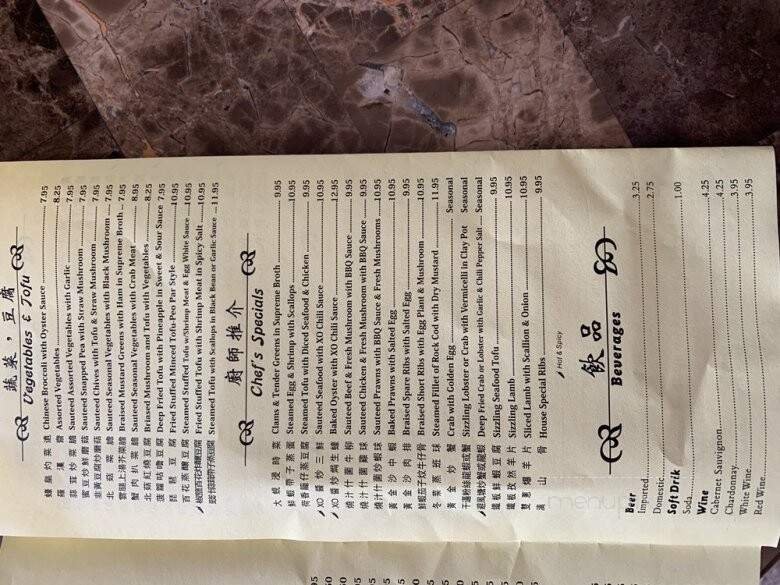 蔬菜,豆腐
Vegetables & Tofu
Chinese Broccoli with Oyster Sauce 7.95
羅漢齋 Assorted Vegetables 8.25
Sauteed Assorted Vegetables with Garlic 7.95
蜜豆炒鮮磨菇 Sauteed Snapped Pea with Straw Mushroom 7.95
韭黃豆腐炒磨菇 Sauteed Chives with Tofu & Straw Mushroom 7.95
北菇菜膽 Sauteed Seasonal Vegetables with Black Mushroom 7.95
雲腿上湯芥菜膽 Braised Mustard Greens with Ham in Supreme Broth 7.95
蟹肉扒菜膽 Sauteed Seasonal Vegetables with Crab Meat 8.95
北菇紅燒豆腐 Briased Mushroom and Tofu with Vegetables 8.25
菠蘿咕嚕豆腐 Deep Fried Tofu with Pineapple in Sweet & Sour Sauce 7.95
琵琶豆腐 Fried Stuffed Minced Tofu-Peo Par Style 10.95
百花蒸釀豆腐 Steamed Stuffed Tofu w/Shrimp Meat & Egg White Sauce 10.95
椒鹽百花炸釀豆腐 Fried Stuffed Tofu with Shrimp Meat in Spicy Salt 10.95
Steamed Tofu w/Scallops in Black Bean or Garlic Sauce 11.95
廚師推介
Chef's Specials
大蜆浸時菜 Clams & Tender Greens in Supreme Broth 9.95
鮮蝦帶子蒸蛋 Steamed Egg & Shrimp with Scallops 10.95
荷香雞仔蒸豆腐 Steamed Tofu with Diced Seafood & Chicken 9.95
XO醬炒三鮮 Sauteed Seafood with XO Chili Sauce 10.95
XO醬炒焗生蠔 Baked Oyster with XO Chili Sauce 12.95
燒汁什菌牛柳 Sauteed Beef & Fresh Mushroom with BBQ Sauce 9.95
燒汁什菌雞球 Sauteed Chicken & Fresh Mushroom with BBQ Sauce 9.95
燒汁什菌炒蝦球 Sauteed Prawns with BBQ Sauce & Fresh Mushrooms 10.95
黃金沙中蝦 Baked Prawns with Salted Egg 10.95
黃金沙肉排 Braised Spare Ribs with Salted Egg 9.95
鮮蝦茄子炆牛仔骨 Braised Short Ribs with Egg Plant & Mushroom 10.95
冬菜蒸班球 Steamed Fillet of Rock Cod with Dry Mustard 11.95
黃金炒蟹 Crab with Golden Egg Seasonal
干燒粉絲龍蝦或蟹 Sizzling Lobster or Crab with Vermicelli in Clay Pot Seasonal
避風塘炒蟹或龍蝦 Deep Fried Crab or Lobster with Garlic & Chili Pepper Salt Seasonal
鐵板鮮蝦豆腐 Sizzling Seafood Tofu 9.95
鐵板孜然羊片 Sizzling Lamb 10.95
雙蔥爆羊片 Sliced Lamb with Scallion & Onion 10.95
滿山骨 House Special Ribs 9.95
Hot & Spicy
飲品
Beverages
Beer
Imported 3.25
Domestic 2.75
Soft Drik
Soda 1.00
Wine
Cabernet Sauvignon 4.25
Chardonnay 4.25
White Wine 3.95
Red Wine 3.95
menupix